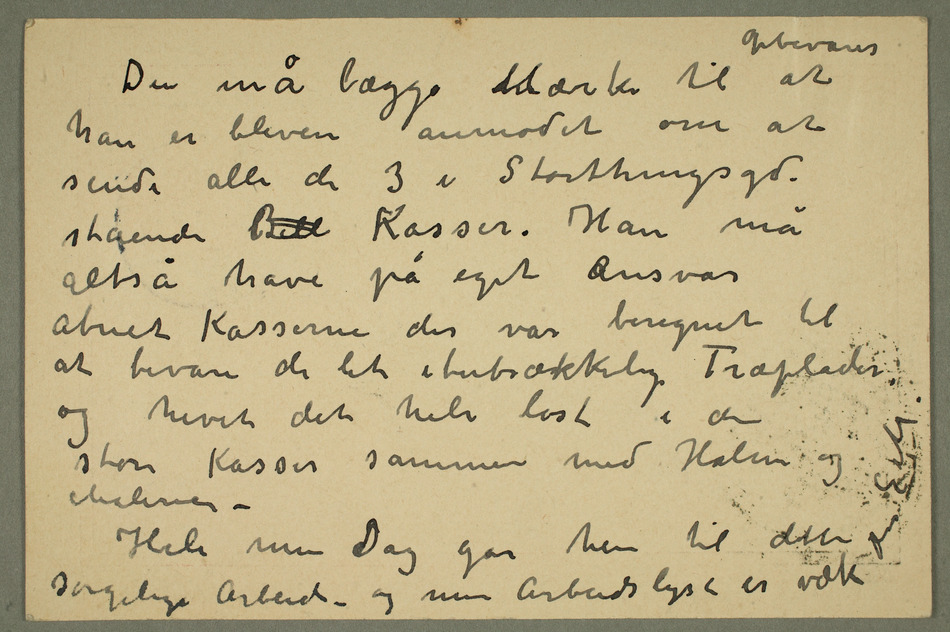 opbevares
Du må lægge Mærke til at
han er bleven anmodet om at
sende alle de 3 i Storthingsgd.
stående Bill Kasser. Han må
altså have på eget Ansvar
åbnet Kasserne der var beregnet til
at bevare de let Træplader.
og hevet det hele løst i de
store Kasser sammen med Halm og
Malerier –
Hele min Dag går hen til dette
sørgelige Arbeid – og min Arbeidslyst er væk